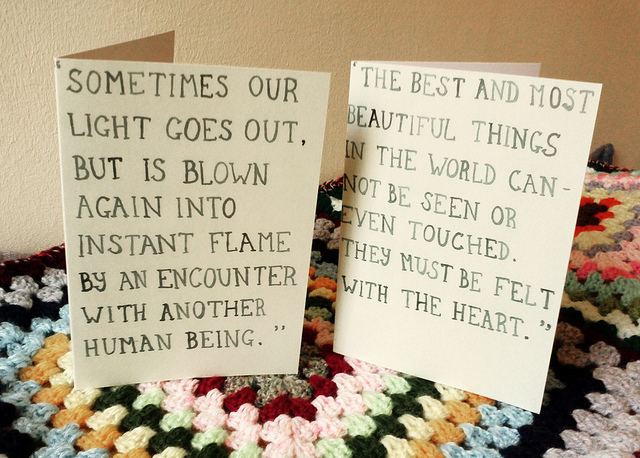 "SOMETIMES OUR
LIGHT GOES OUT,
BUT IS BLOWN
AGAIN INTO
INSTANT FLAME
BY AN ENCOUNTER
WITH ANOTHER
HUMAN BEING."
"THE BEST AND MOST
BEAUTIFUL THINGS
IN THE WORLD CAN-
NOT BE SEEN OR
EVEN TOUCHED.
THEY MUST BE FELT
WITH THE HEART."